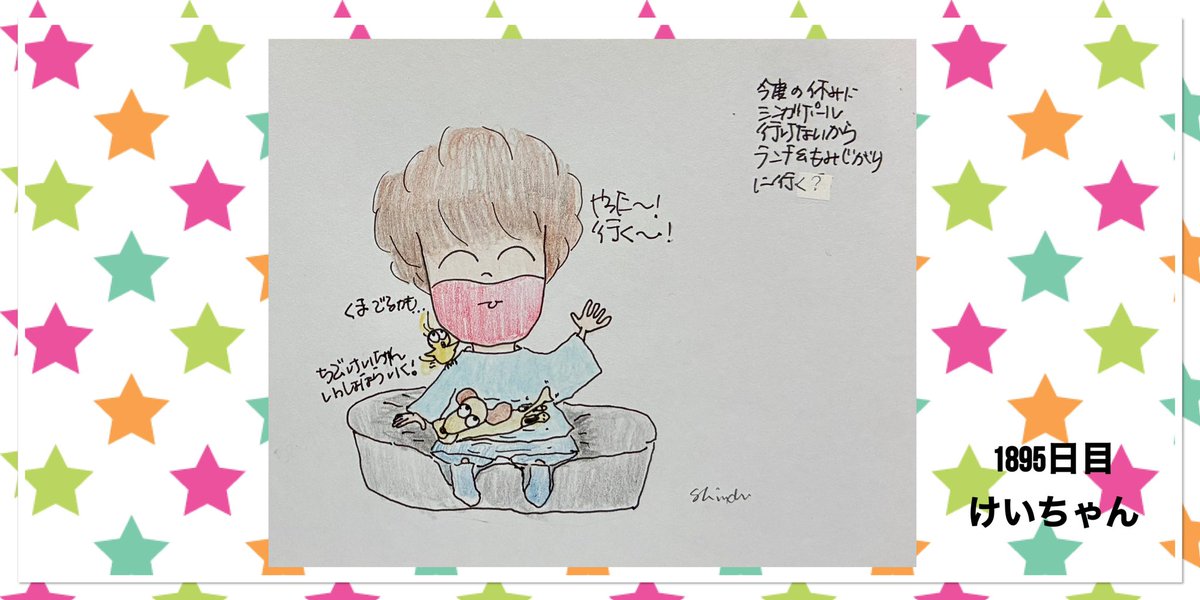 今度の休みに
シンガポール
行けないから
ランチ&もみじがり
に行く?
やった〜!
行く〜!
くまでるかも..
ちごいけいちゃん
いく!
Shindi
1895日目
けいちゃん